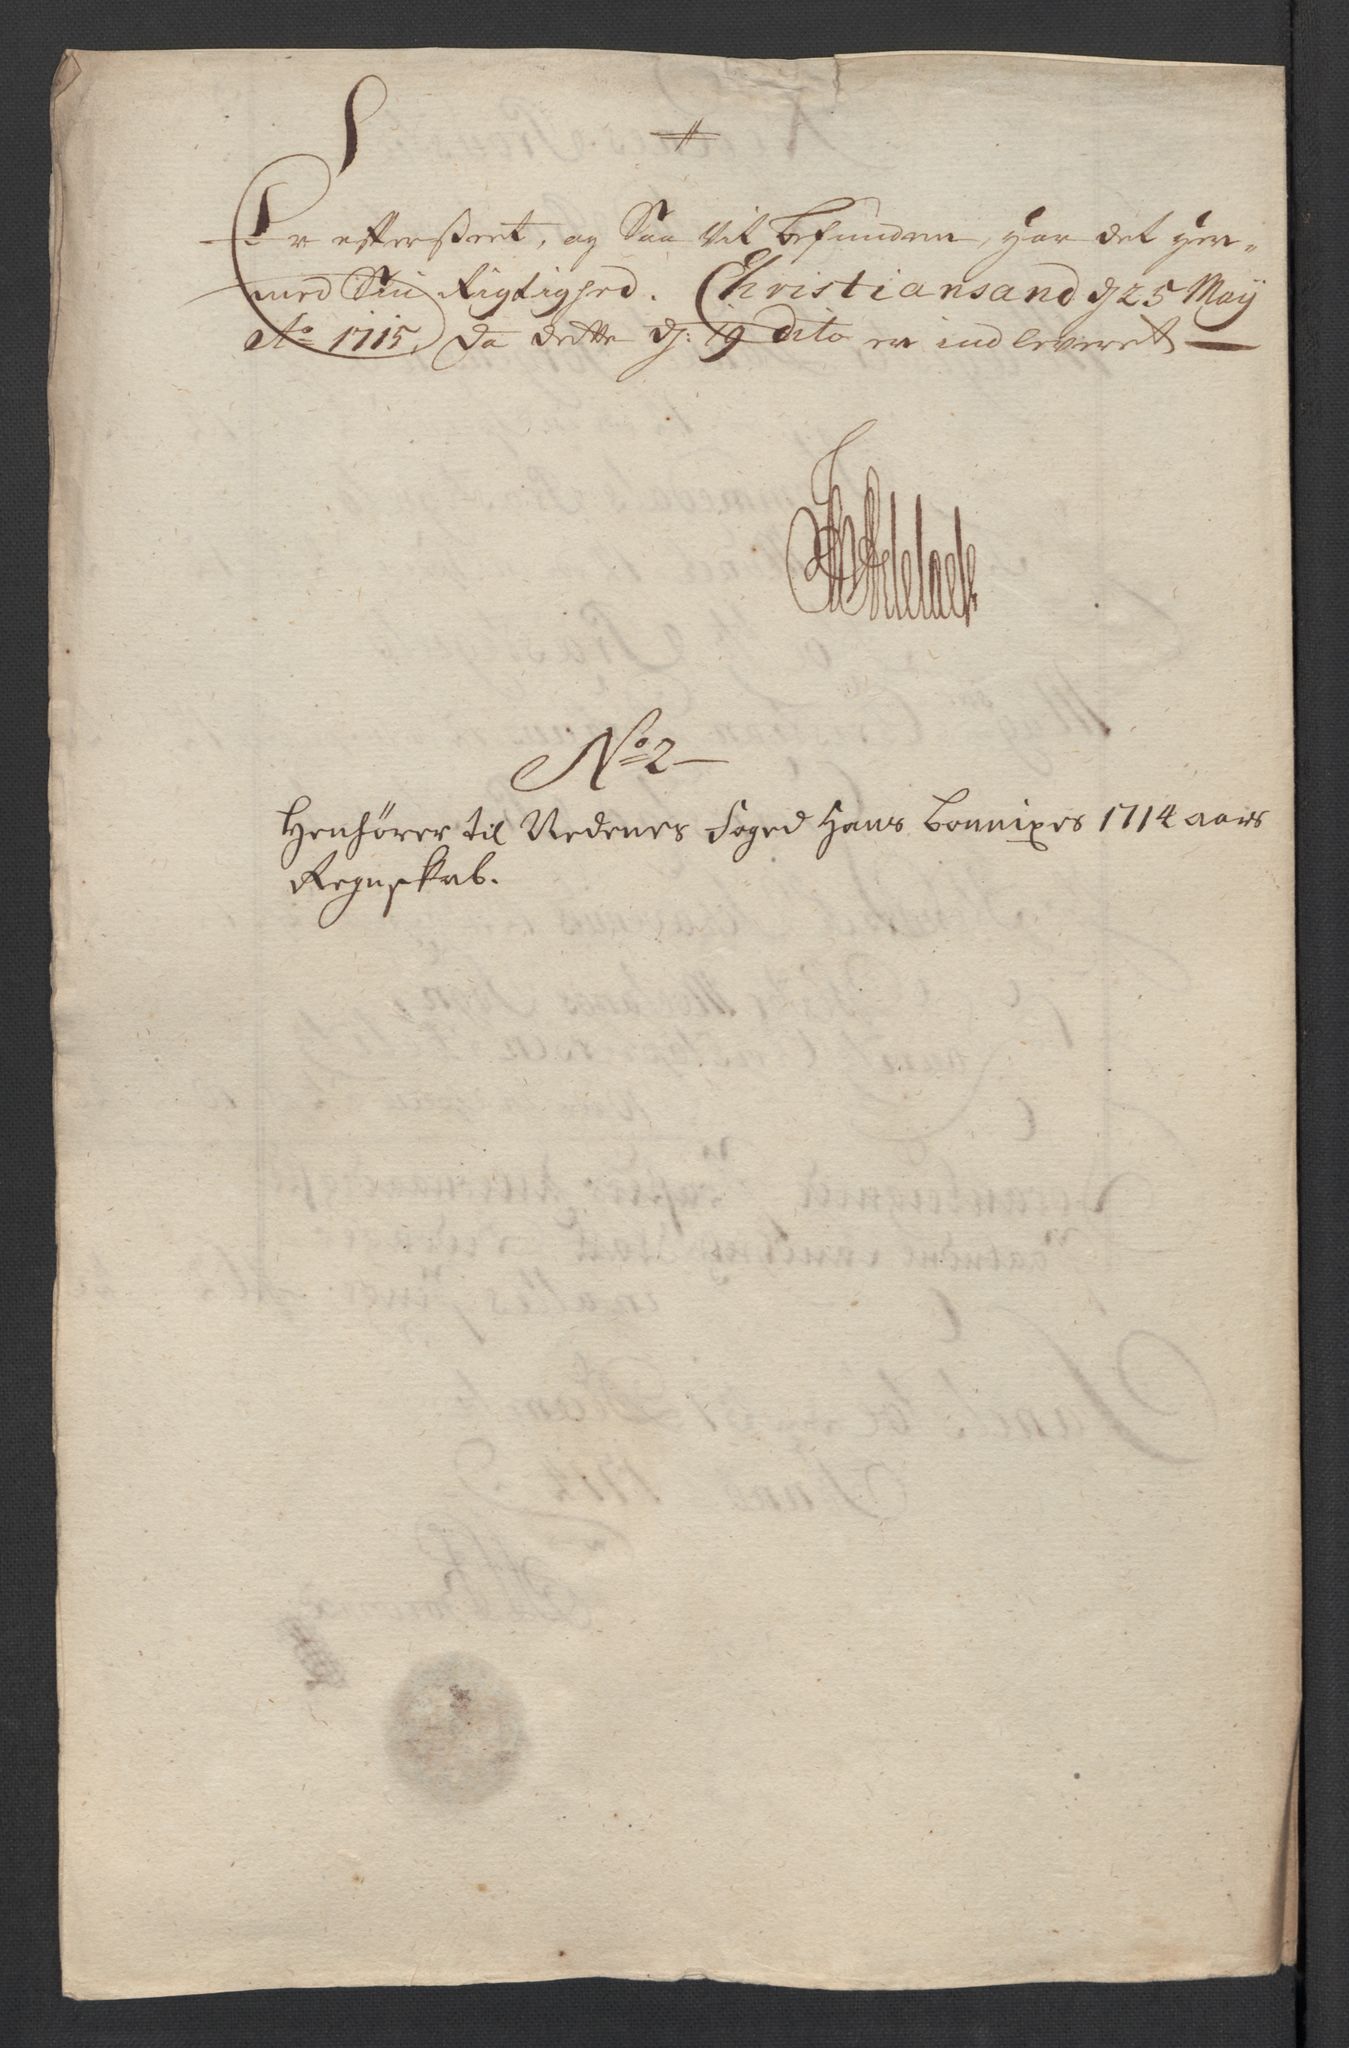 Er efterseet, og Saa vit befunden, har det her-
med Sin Rigtighed. Christiansand d 25 May
Ao 1715, da dette d: 19 dito er indleveret
No 2
Henhører til Nedenes Foged Hans Bonnixes 1714 aars
Regnskab.